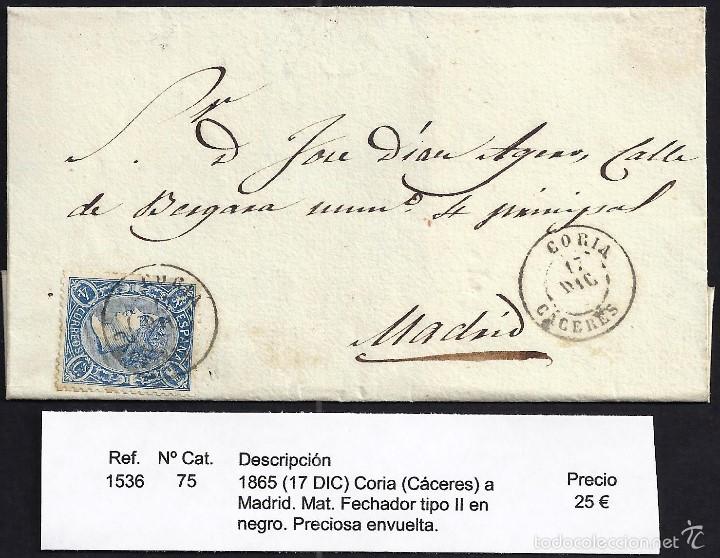 S.r
D Jose Diaz Agero, Calle
de Bergara num.o 4 principal
Madrid
CORIA
17
DIC
CACERES
CORREOS
ESPAÑA
Ref. Nº Cat. Descripción Precio
1536 75 1865 (17 DIC) Coria (Cáceres) a 25 €
Madrid. Mat. Fechador tipo II en
negro. Preciosa envuelta.
© todocoleccion.net